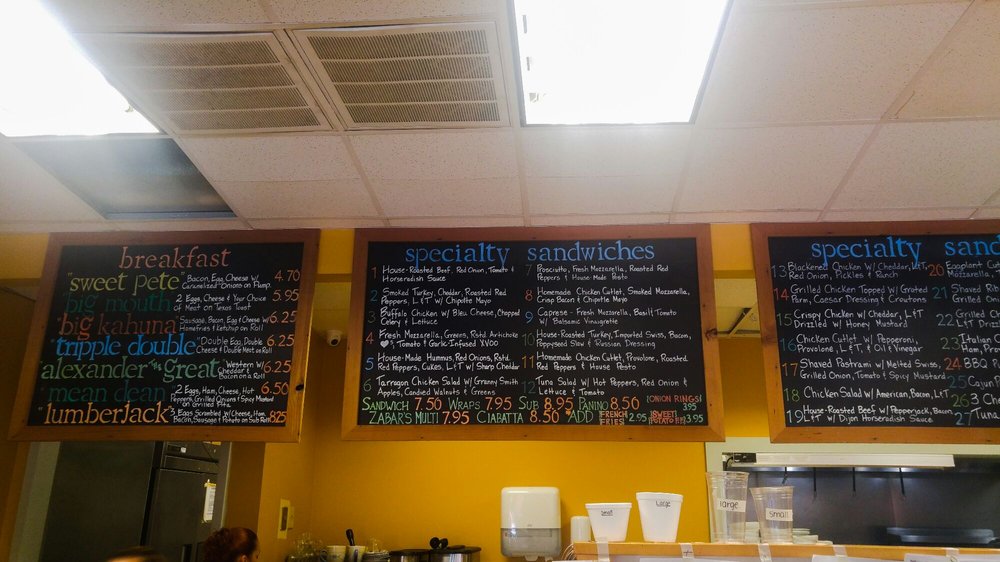 breakfast
"sweet pete" Bacon, Egg Cheese W/ Caramelized Onions on Pump. 4.70
big mouth 2 Eggs, Cheese & Your Choice of Meat on Texas Toast 5.95
"big kahuna" Sausage, Bacon, Egg Cheese W/ Homefries & Ketchup on Roll 6.25
"tripple double" Double Egg, Double Cheese & Double Meat on Roll 6.25
alexander "the" great Western W/ Cheddar & Bacon on a Roll 6.25
mean dean 2 Eggs, Ham, Cheese, Hot Peppers, Grilled Onions & Spicy Mustard on Grilled Pita 6.50
"lumberjack" 3 Eggs Scrambled W/ Cheese, Ham, Bacon, Sausage & Potato on Sub 8.25
specialty sandwiches
1 House-Roasted Beef, Red Onion, Tomato & Horseradish Sauce
2 Smoked Turkey, Cheddar, Roasted Red Peppers, L&T W/ Chipotle Mayo
3 Buffalo Chicken W/ Bleu Cheese, Chopped Celery & Lettuce
4 Fresh Mozzarella, Greens, Rstd. Artichoke ♥'s, Tomato & Garlic-Infused XVOO
5 House-Made Hummus, Red Onions, Rstd. Red Peppers, Cukes, L&T W/ Sharp Cheddar
6 Tarragon Chicken Salad W/ Granny Smith Apples, Candied Walnuts & Greens
7 Prosciutto, Fresh Mozzarella, Roasted Red Peppers & House-Made Pesto
8 Homemade Chicken Cutlet, Smoked Mozzarella, Crisp Bacon & Chipotle Mayo
9 Caprese - Fresh Mozzarella, Basil, Tomato W/ Balsamic Vinaigrette
10 House-Roasted Turkey, Imported Swiss, Bacon, Poppyseed Slaw & Russian Dressing
11 Homemade Chicken Cutlet, Provolone, Roasted Red Peppers & House Pesto
12 Tuna Salad W/ Hot Peppers, Red Onion & Lettuce & Tomato
Sandwich 7.50 Wraps 7.95 Sub 8.95 Panino 8.50
Zabar's Multi 7.95 Ciabatta 8.50 *Add French Fries 2.95 Sweet Potato 3.95
Onion Rings 3.95
specialty sand
13 Blackened Chicken W/ Cheddar, L&T, Red Onion, Pickles & Ranch
14 Grilled Chicken Topped W/ Grated Parm, Caesar Dressing & Croutons
15 Crispy Chicken W/ Cheddar, L&T Drizzled W/ Honey Mustard
16 Chicken Cutlet W/ Pepperoni, Provolone, L&T, & Oil & Vinegar
17 Shaved Pastrami W/ Melted Swiss, Grilled Onion, Tomato & Spicy Mustard
18 Chicken Salad W/ American, Bacon, L&T
19 House-Roasted Beef W/ Pepperjack, Bacon, L&T W/ Dijon Horseradish Sauce
20 Eggplant Cut
21 Shaved Rib
Grilled On
22 Grilled Ch
23 Italian C
Ham, Pro
24 BBQ
25 Cajun
26 3 Che
27 Tuna
Small
Large
large
small